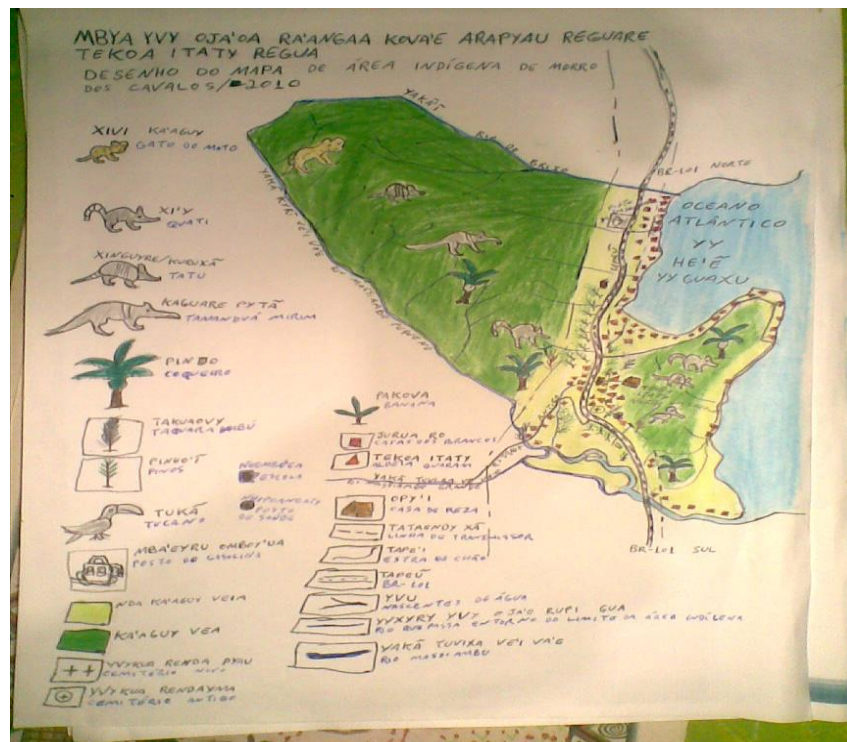 MBYA YVY OJA'OA RA'ANGAA KOVA'E ARAPYAU REGUARE
TEKOA ITATY REGUA
DESENHO DO MAPA DE ÁREA INDÍGENA DE MORRO
DOS CAVALOS/2010
XIVI KA'AGUY
GATO DO MATO
XI'Y
QUATI
XINGUYRE/
TATU
KAGUARE PYTÃ
TAMANDUÁ MIRIM
PINDO
COQUEIRO
TAKUAOVY
TAQUARA
PINDO'I
PINOS
ESCOLA
POSTO
DE SAÚDE
TUKÃ
TUCANO
MBA'EYRU OMBOY'UA
POSTO DE GASOLINA
NDA KA'AGUY VEIA
KA'AGUY VEA
YVYKUA RENDA PYAU
CEMITÉRIO NOVO
YVYKUA RENDAYMA
CEMITÉRIO ANTIGO
PAKOVA
BANANA
JURUA RO
CAPAS DOS BRANCOS
TEKOA ITATY
ALDEIA GUARANI
OPY'I
CASA DE REZA
TATAENDY XÁ
LINHA DE TRANSLADOR
TAPE'I
ESTRA DE CHÃO
BR-101
YVU
NASCENTES DE ÁGUA
YYXYRY YVY OJA'E RUPI GUA
RIO QUE PASSA ENTORNO DO LIMITE DA ÁREA INDÍGENA
YAKÃ TUVIXA VE'I VA'E
RIO MASSIAMBU
RIO DO BRITO
BR-101 NORTE
OCEANO
ATLÂNTICO
YY
HE'Ê
YY GUAXU
BR-101 SUL